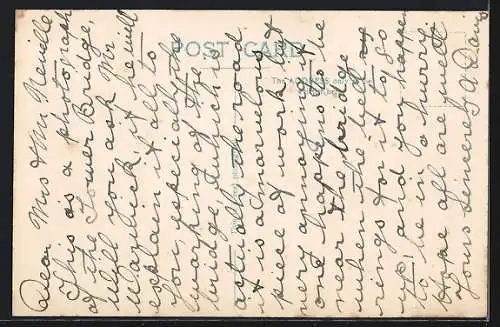 Dear Mrs & Mr Neville
This is a photograph
of the Tower Bridge,
will you ask Mr
Warwick, if he will
explain it all to
you, especially the
working of the
bridge, which is
actually the road
it is a marvelous
piece of work but
very annoying if
one happens to be
near the bridge
when the bell
rings for it to go
up, and you happen
to be in a hurry.
Hope all are well
Yours Sincerely A Davis
POST CARD
The ADDRESS only to be